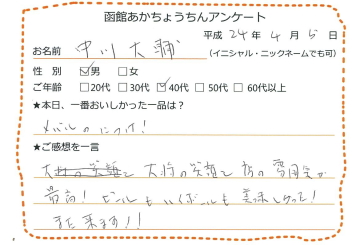 函館あかちょうちんアンケート
平成 24年 4月 5日
お名前 中川大輔 (イニシャル・ニックネームでも可)
性 別 ☑男 □女
ご年齢 □20代 □30代 ☑40代 □50代 □60代以上
★本日、一番おいしかった一品は?
メバルのにつけ!
★ご感想を一言
大将の笑顔と 店の雰囲気が
最高! ビールもハイボールも美味しかった!
また来ます!!